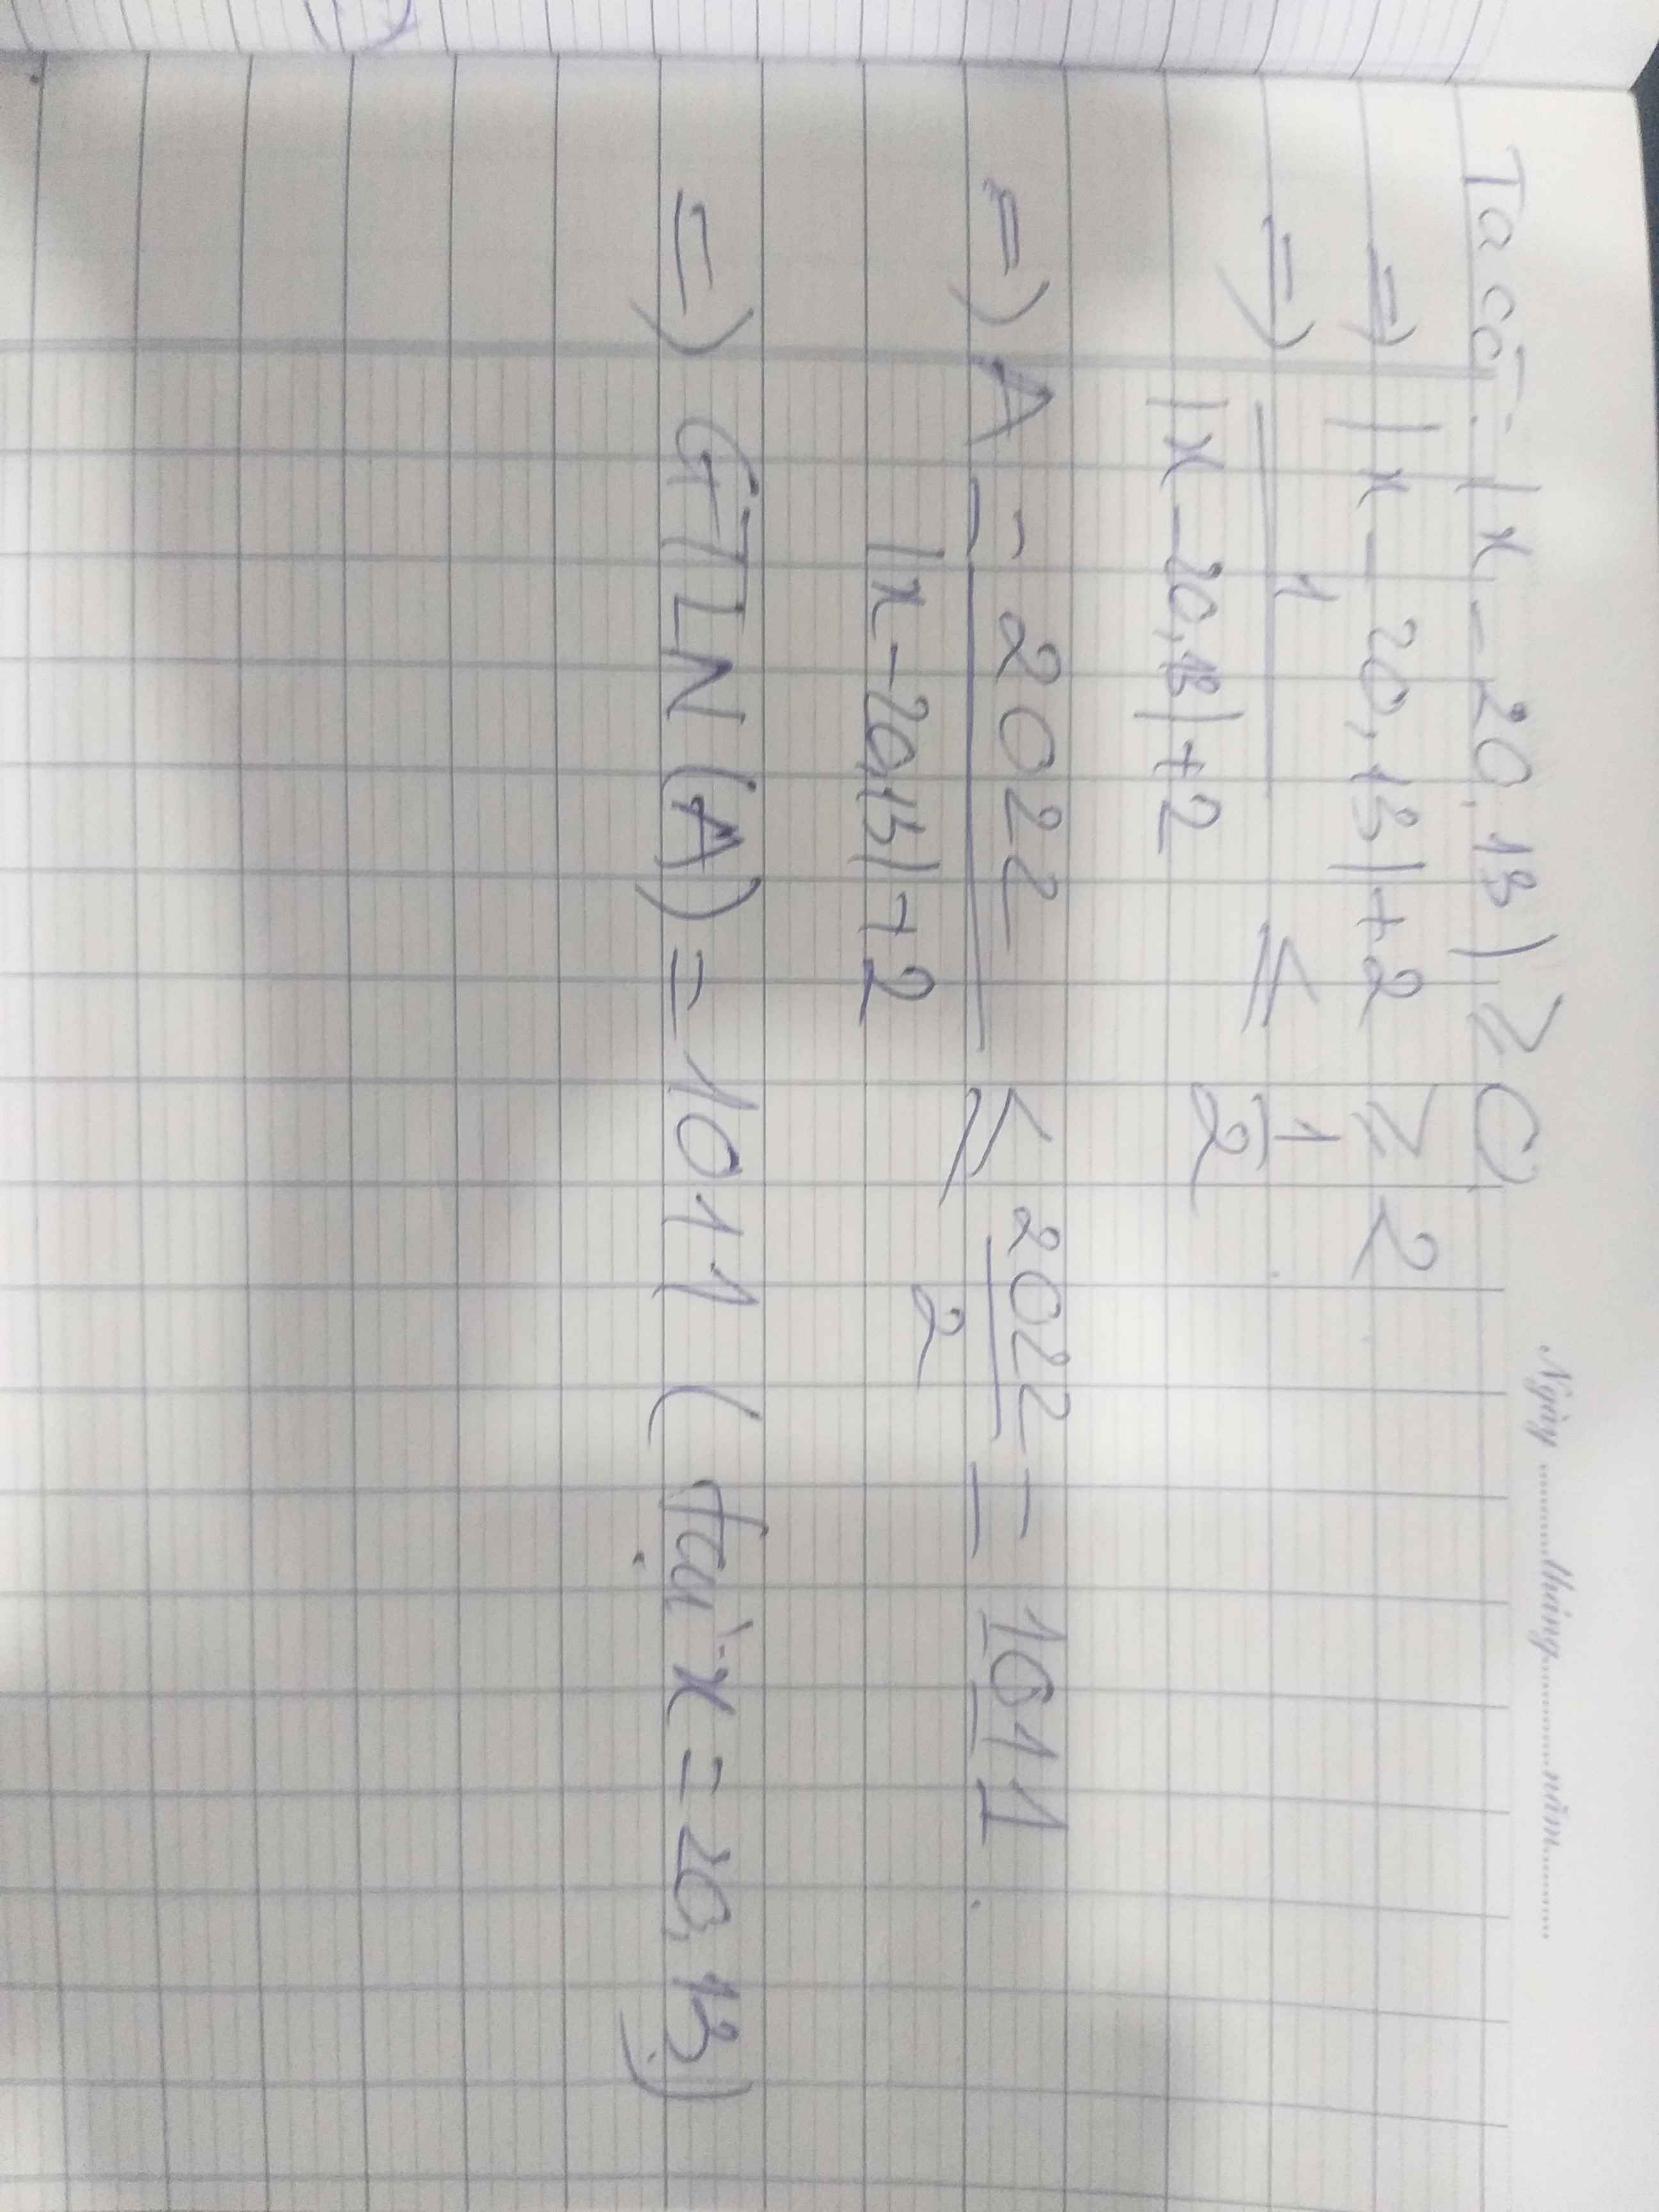 Ngày ........tháng........năm........
Ta có: |x - 20,13| ≥ 0
=) |x - 20,13| + 2 ≥ 2
=) 1 / (|x - 20,13| + 2) ≤ 1/2
=) A = 2022 / (|x - 20,13| + 2) ≤ 2022/2 = 1011
=) GTLN (A) = 1011 ( tại x = 20,13)